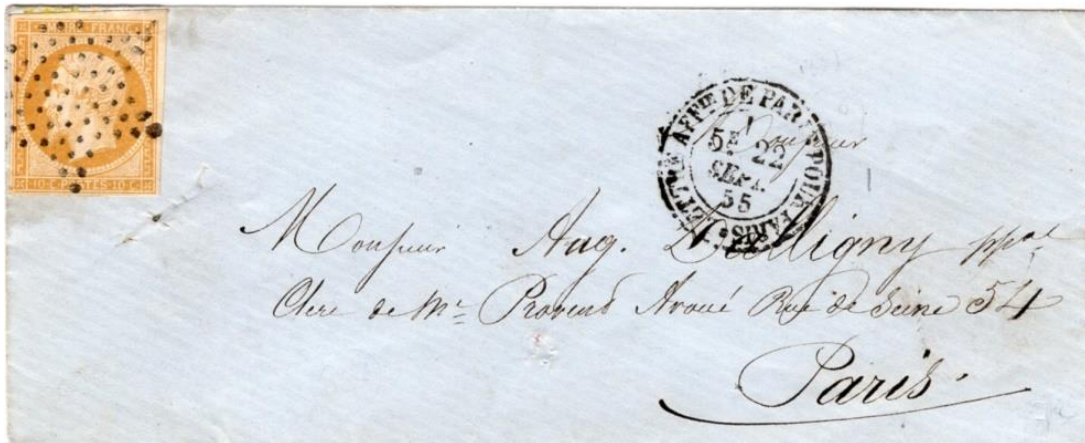 EMPIRE FRANC
10·C·POSTES·10·C
LETTRE AFFie DE PARIS POUR PARIS
5E
22
SEPT.
55
Monsieur
Monsieur Aug. ppal
Clerc de Me Provent Avoué Rue de Seine 54
Paris.